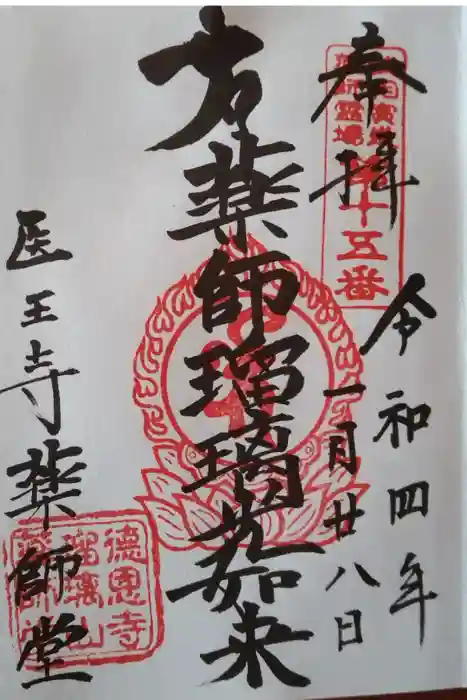 奉拝
第十五番
令和四年
一月廿八日
古薬師瑠璃茹来
医王寺薬師堂
徳恩寺
瑠璃山